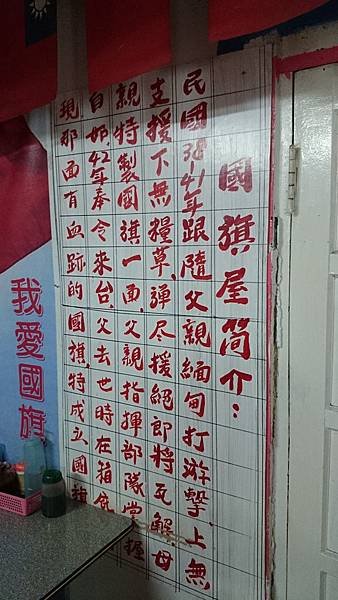 國旗屋簡介：
民國38-41年跟隨父親緬甸打游擊，上無
支援下無糧草，彈尽援絕即將瓦解母
親特製國旗一面，父親指揮部隊掌握
自如，42年奉令來台，父去世時在箱
現那面有血跡的國旗，特成立國旗
我愛國旗